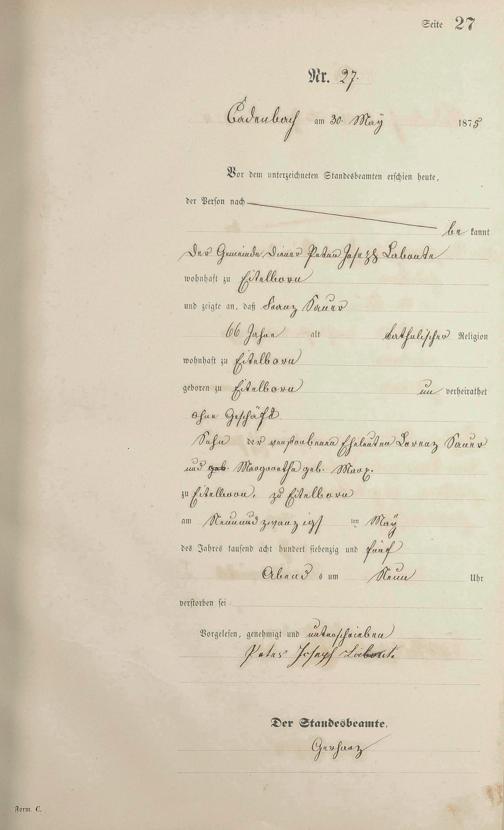 Seite 27
Nr. 27.
Cadenbach am 30 May 1875
Vor dem unterzeichneten Standesbeamten erschien heute,
der Person nach
be kannt
der Gemeinde Diener Peter Joseph Labonte
wohnhaft zu Eitelborn
und zeigte an, daß Franz Sauer
66 Jahre alt katholischer Religion
wohnhaft zu Eitelborn
geboren zu Eitelborn un verheirathet
ohne Geschäft
Sohn der verstorbenen Eheleuten Lorenz Sauer
und geb. Margaretha geb. Marx.
zu Eitelborn. zu Eitelborn
am Neunundzwanzigst ten May
des Jahres tausend acht hundert siebenzig und fünf
Abend s um Neun Uhr
verstorben sei
Vorgelesen, genehmigt und unterschrieben
Peter Joseph Labonte
Der Standesbeamte.
Gerharz
Form. C.